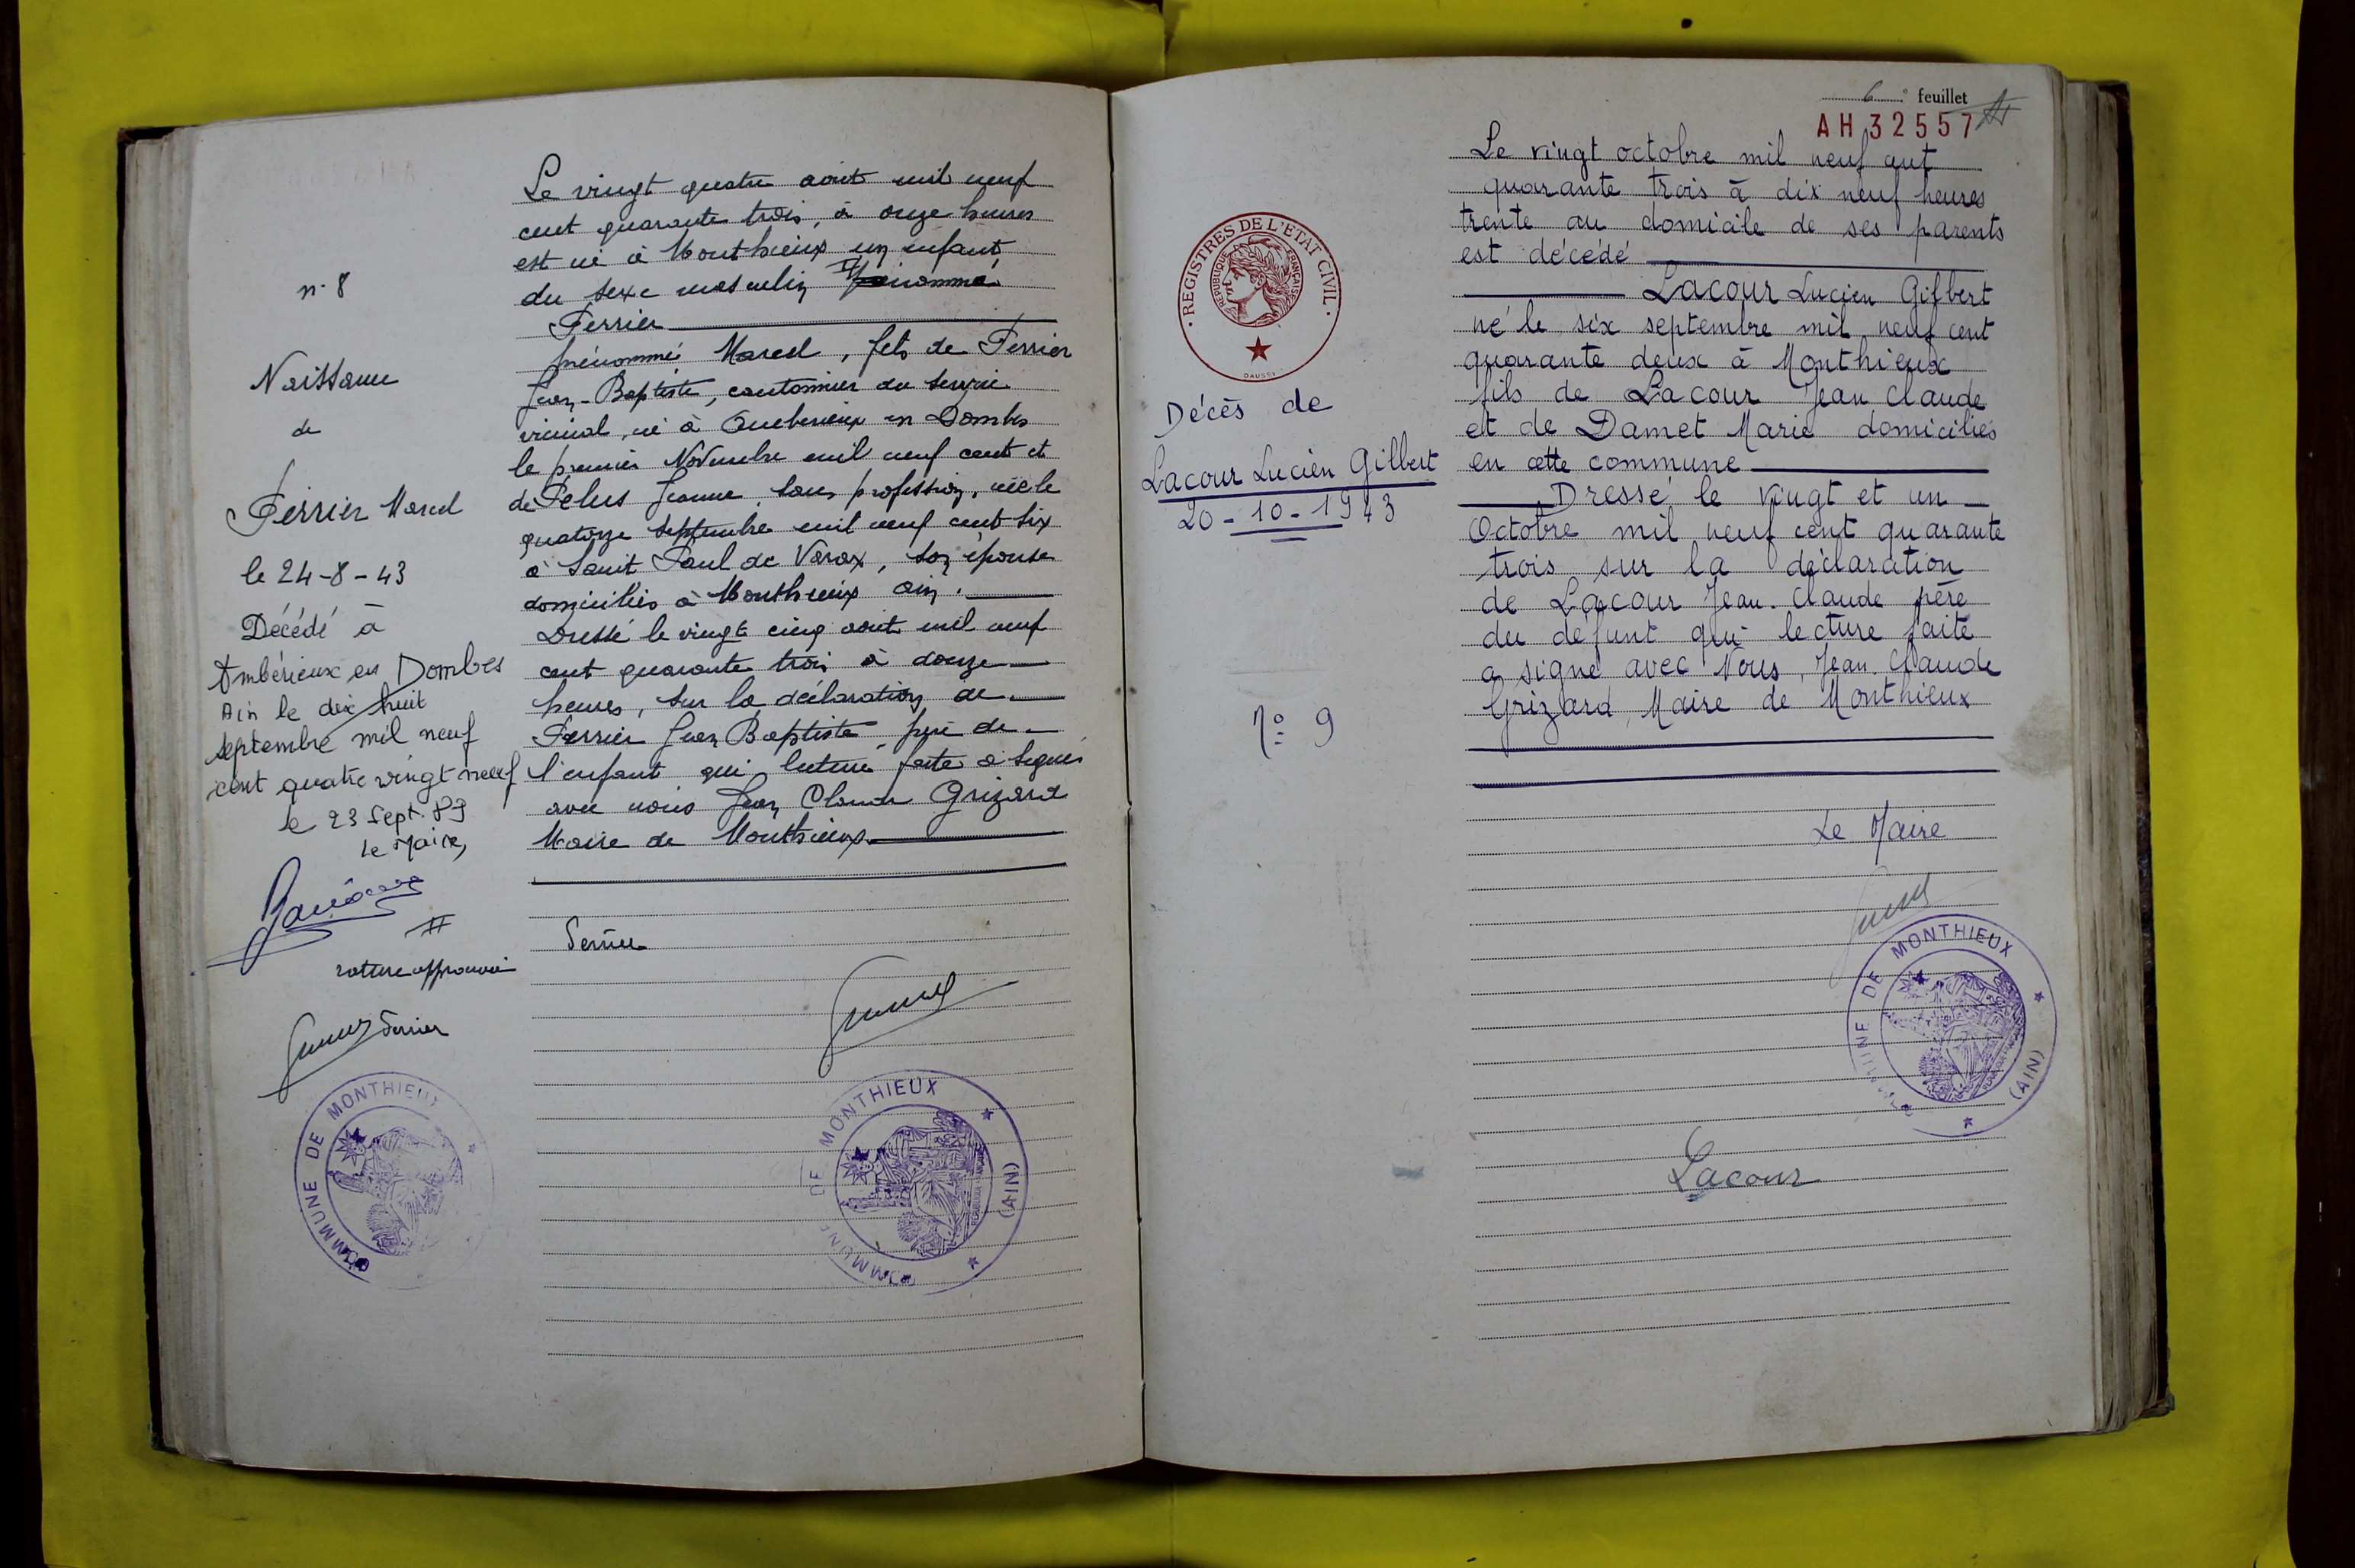 n° 8
Naissance
de
Perrier Marcel
le 24-8-43
Décédé à
Ambérieux en Dombes
Ain le dix huit
septembre mil neuf
cent quatre vingt neuf
le 23 Sept. 89
le Maire,
rature approuvée
Perrier
COMMUNE DE MONTHIEUX
Le vingt quatre août mil neuf
cent quarante trois, à onze heures
est né à Monthieux un enfant
du sexe masculin prénommé
Perrier
prénommé Marcel, fils de Perrier
Jean-Baptiste, cantonnier du service
vicinal, né à Ambérieux en Dombes
le premier Novembre mil neuf cent et
de Pelus Jeanne sans profession, née le
quatorze septembre mil neuf cent six
à Saint Paul de Varax, son épouse
domiciliés à Monthieux Ain.
Dressé le vingt cinq août mil neuf
cent quarante trois à douze
heures, sur la déclaration de
Perrier Jean Baptiste père de
l'enfant qui lecture faite a signé
avec nous Jean Claude Grizard
Maire de Monthieux
Perrier
COMMUNE DE MONTHIEUX (AIN)
6e feuillet
AH 32557
REGISTRES DE L'ETAT CIVIL
REPUBLIQUE FRANÇAISE
DAUSSY
Décès de
Lacour Lucien Gilbert
20-10-1943
N° 9
Le vingt octobre mil neuf cent
quarante trois à dix neuf heures
trente au domicile de ses parents
est décédé
Lacour Lucien Gilbert
né le six septembre mil neuf cent
quarante deux à Monthieux
fils de Lacour Jean Claude
et de Damet Marie domiciliés
en cette commune
Dressé le vingt et un
Octobre mil neuf cent quarante
trois sur la déclaration
de Lacour Jean-Claude père
du défunt qui lecture faite
a signé avec Nous, Jean Claude
Grizard, Maire de Monthieux
Le Maire
COMMUNE DE MONTHIEUX (AIN)
Lacour